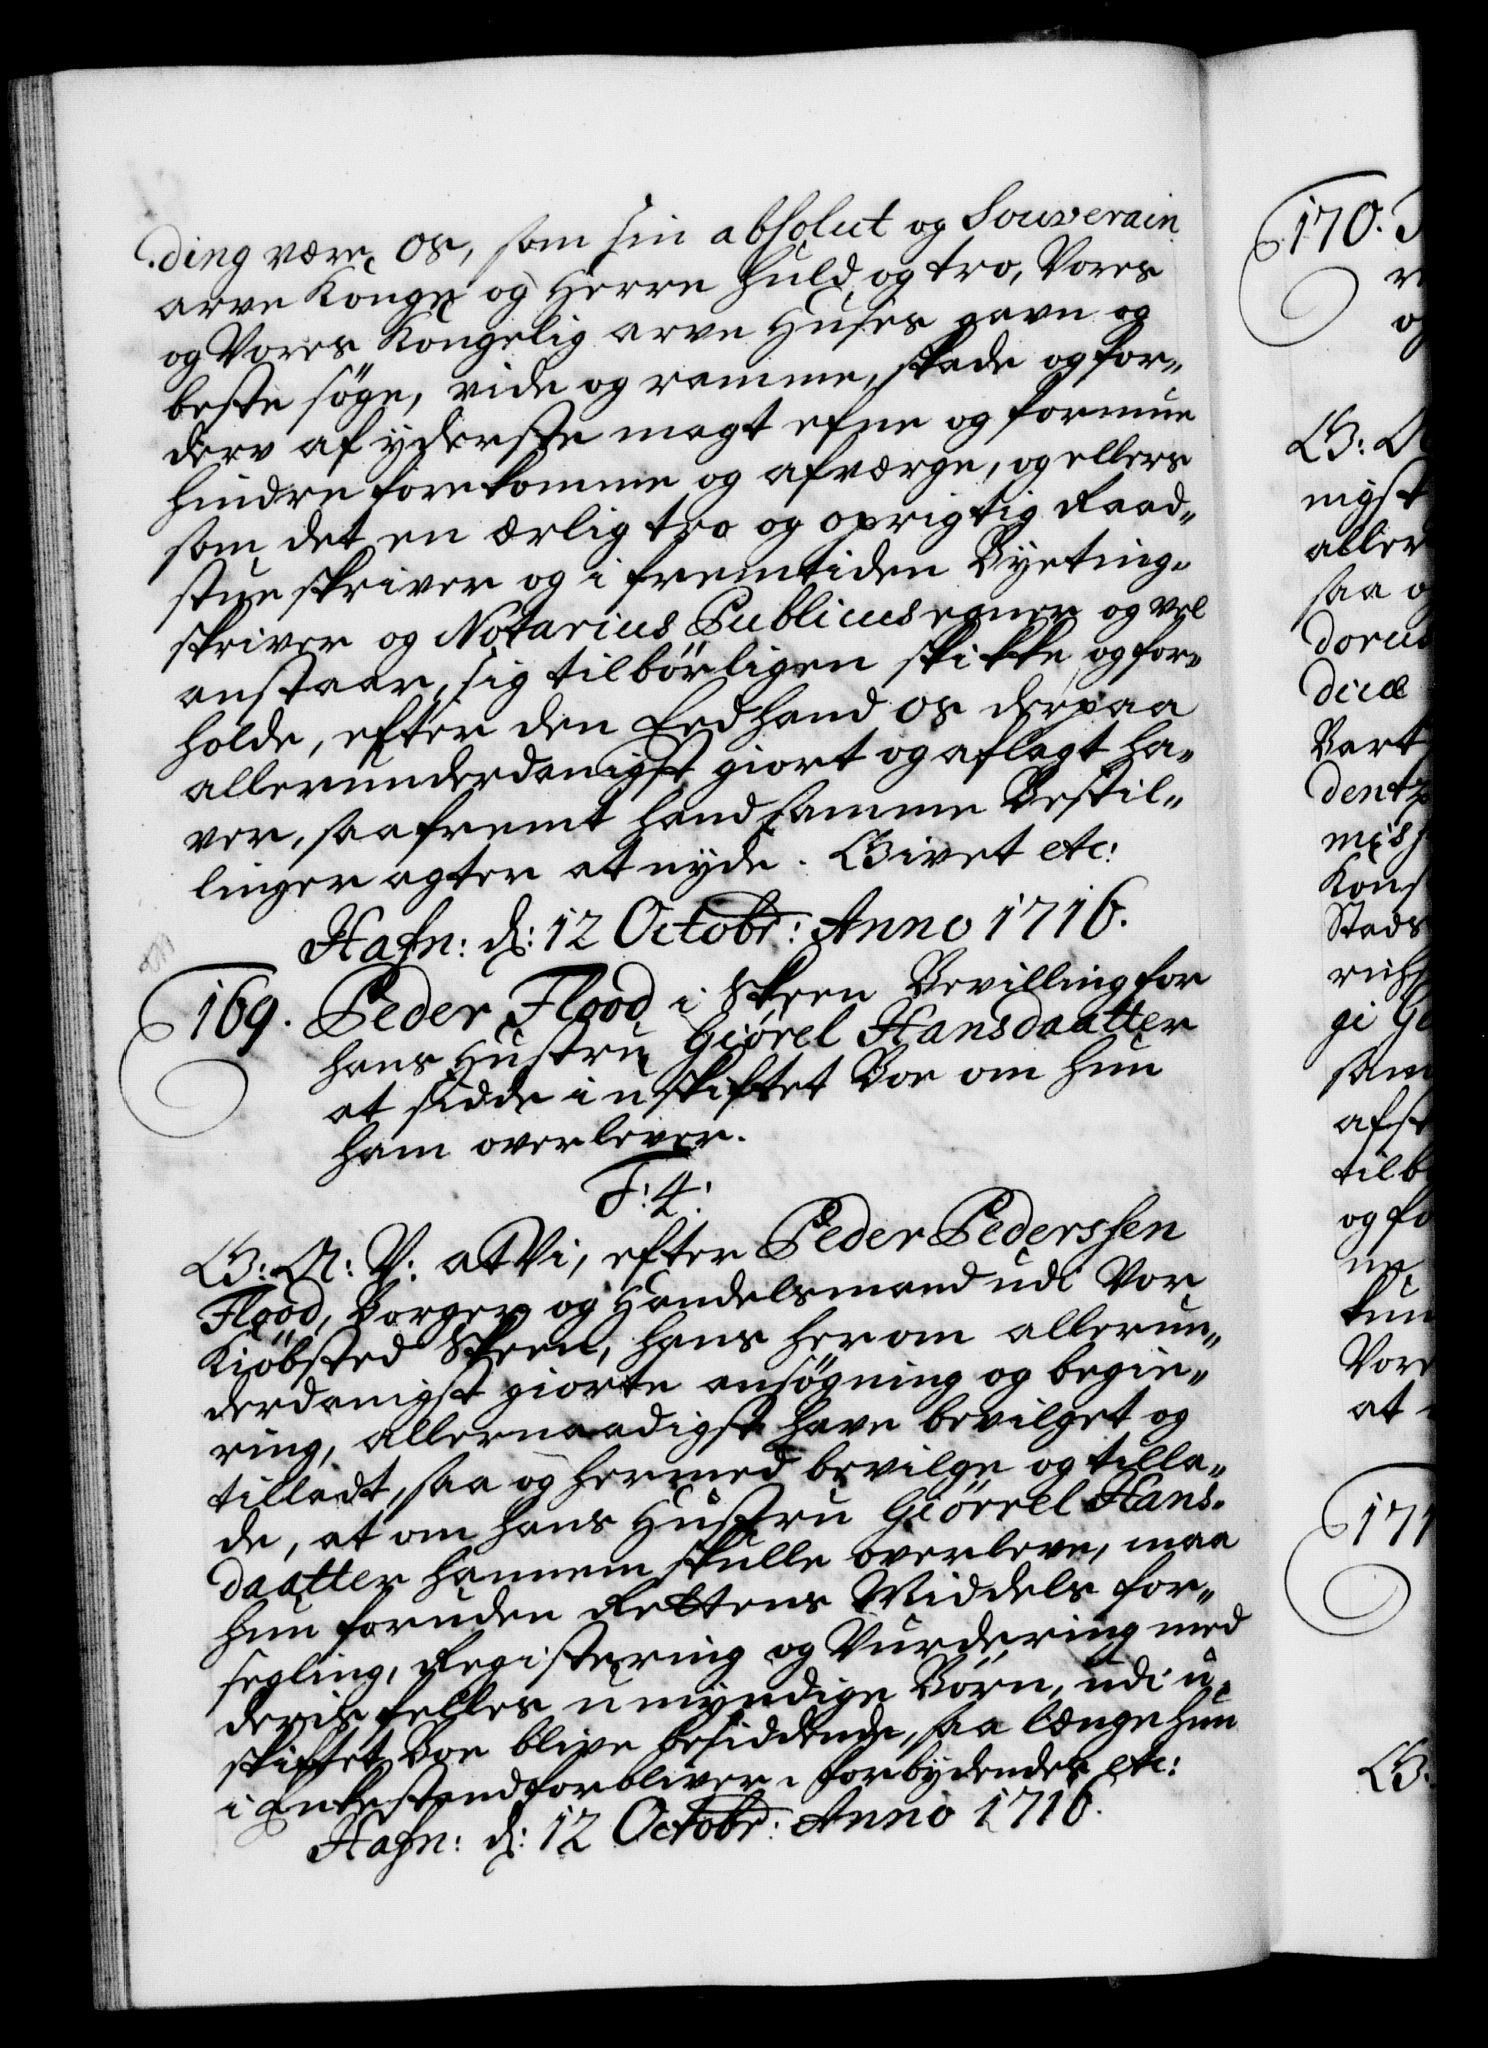 ding være os, som sin absolut og Souverain
arve Konge og Herre huld og tro, Vores
og Vores Kongelig arve Huses gavn og
beste søge, vide og ramme, skade og for„
derv af yderste magt efne og formue
hindre forekomme og afværge, og ellers
som det en ærlig tro og oprigtig Raad„
stue skriver og i fremtiden Byeting„
skriver og Notarius Publicus egner og vel
anstaar, sig tilbørligen skikke og for„
holde, efter den Eed hand os derpaa
allerunderdanigst giort og aflagt ha„
ver, saafremt hand samme Bestil„
linger agter at nyde. Givet etc:
Hafn: d: 12 Octobr: Anno 1716.
169. Peder Flood i Skeen Bevilling for
hans Hustru Giørel Hansdaatter
at sidde i uskiftet Boe om hun
ham overlever.
F: 4:
G: A: V: at Vi, efter Peder Pederssen
Flood, Borger og Handelsmand udi Vor
Kiøbsted Skeen, hans herom allerun„
derdanigst giorte ansøgning og begie„
ring, allernaadigst have bevilget og
tilladt, saa og hermed bevilge og tilla„
de, at om hans Hustru Giørrel Hans„
daatter hannem skulle overleve, maa
hun foruden Rettens Middels for„
segling, Registering og Vurdering med
deris felles umyndige Børn, udi u„
skiftet Boe blive besiddende, saa længe hun
i Enkestand forbliver. Forbydendes etc:
Hafn: d: 12 Octobr: Anno 1716.
170.
G: A
nigst
aller
saa o
dorus
diæ
Bart
dentz
Stads
sam
afst
tilb
og fo
Vore
at
171
G: